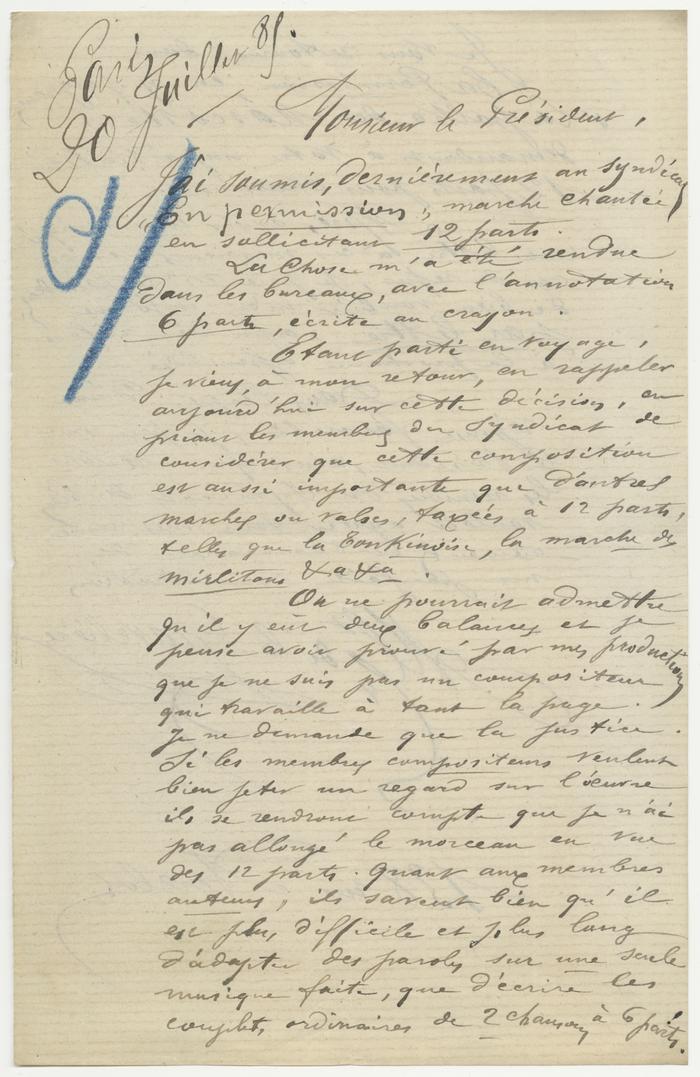 Paris
20 Juillet 85.
Monsieur le Président,
J'ai soumis, dernièrement au syndicat
"En permission", marche chantée
en sollicitant 12 parts.
La chose m'a été rendue
dans les bureaux, avec l'annotation
6 parts, écrite au crayon.
Etant parti en voyage,
je viens, à mon retour, en rappeler
aujourd'hui sur cette décision, en
priant les membres du Syndicat de
considérer que cette composition
est aussi importante que d'autres
marches ou valses, taxées à 12 parts,
telles que la Tonkinoise, la marche des
mirlitons &a &a.
On ne pourrait admettre
qu'il y eût deux balances et je
pense avoir prouvé par mes productions
que je ne suis pas un compositeur
qui travaille à tant la page.
Je ne demande que la justice.
Si les membres compositeurs veulent
bien jeter un regard sur l'œuvre
ils se rendront compte que je n'ai
pas allongé le morceau en vue
des 12 parts. Quant aux membres
auteurs, ils savent bien qu'il
est plus difficile et plus long
d'adapter des paroles sur une seule
musique faite, que d'écrire les
couplets ordinaires de 2 chansons à 6 parts.